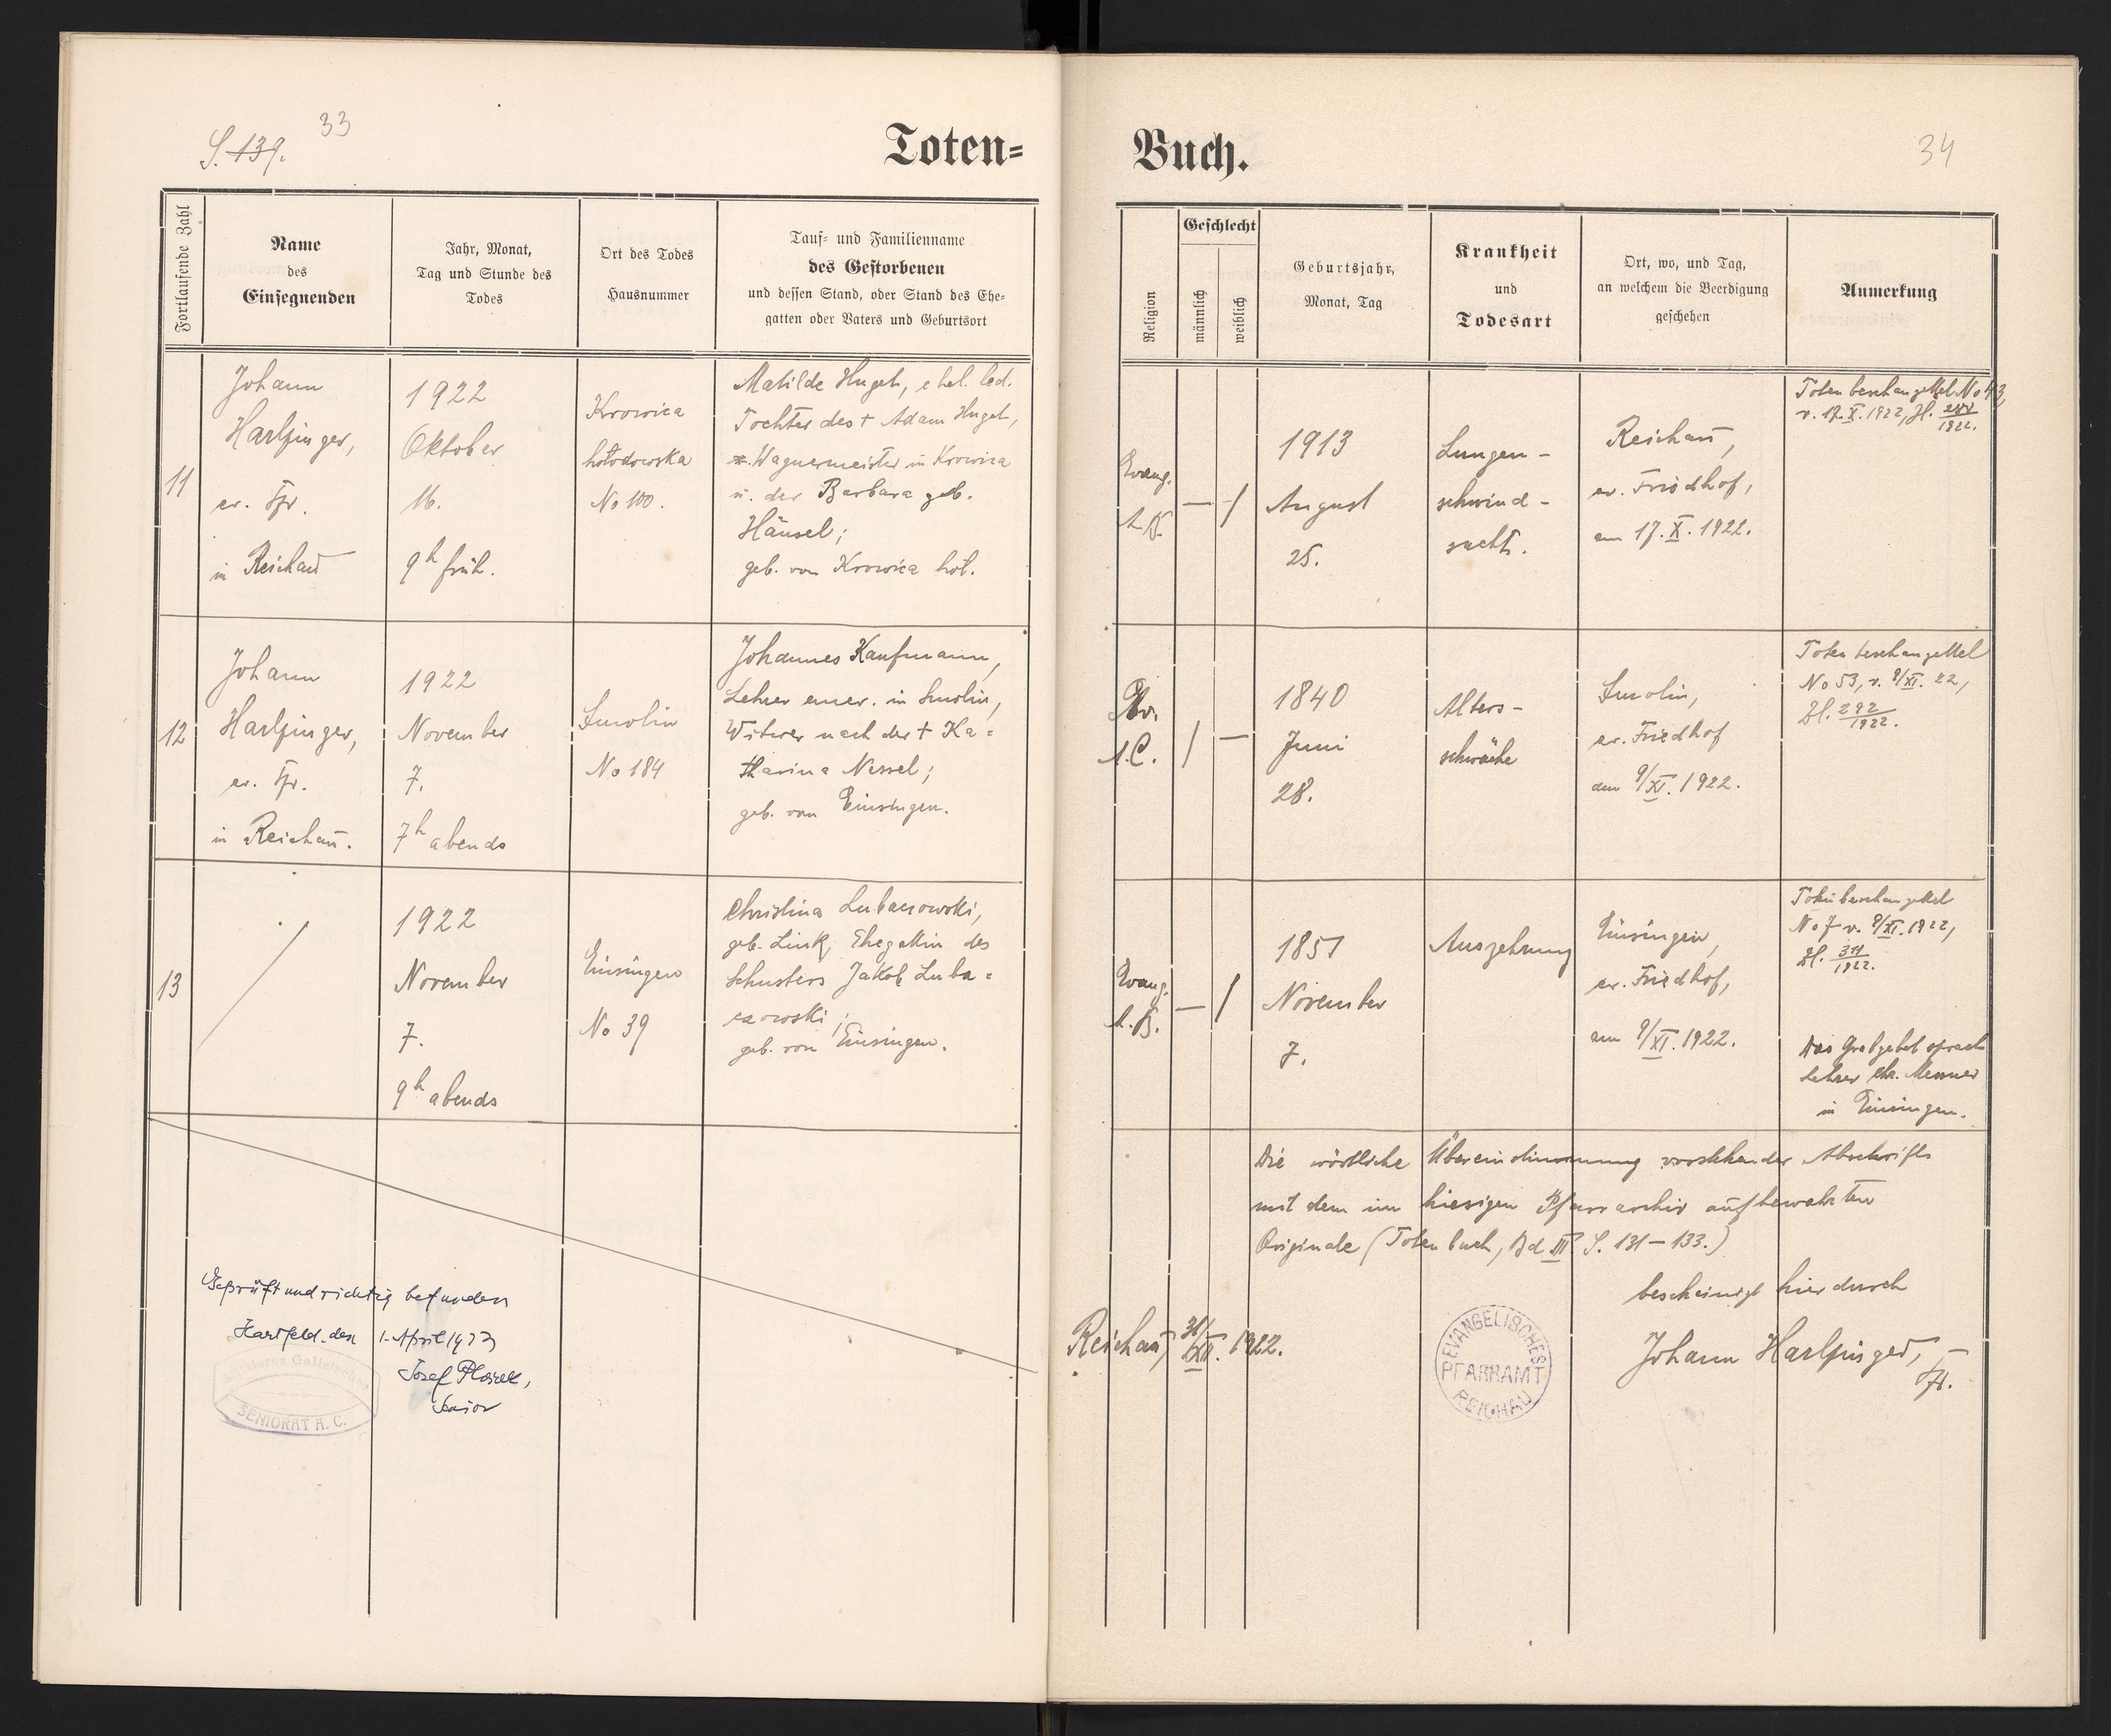 33
S. 139.
Toten-
Buch.
34
Fortlaufende Zahl
Name
des
Einsegnenden
Jahr, Monat,
Tag und Stunde des
Todes
Ort des Todes
Hausnummer
Tauf- und Familienname
des Gestorbenen
und dessen Stand, oder Stand des Ehe-
gatten oder Vaters und Geburtsort
Religion
Geschlecht
männlich
weiblich
Geburtsjahr,
Monat, Tag
Krankheit
und
Todesart
Ort, wo, und Tag,
an welchem die Beerdigung
geschehen
Anmerkung
11
Johann
Harlfinger,
ev. Pfr.
in Reichau
1922
Oktober
16.
9h früh.
Krowica
hołodowska
No 100.
Matilde Hugel, ehel. led.
Tochter des + Adam Hugel,
Wagnermeister in Krowica
u. der Barbara geb.
Häusel;
geb. von Krowica hoł.
Evang.
A.B.
— /
1913
August
25.
Lungen-
schwind-
sucht.
Reichau,
ev. Friedhof,
am 17. X. 1922.
Totenbeschauzettel No 43,
v. 17. X. 1922, Zl.
1922.
12
Johann
Harlfinger,
ev. Pfr.
in Reichau.
1922
November
7.
7h abends
Smolin
No 184
Johannes Kaufmann,
Lehrer emer. in Smolin,
Witwer nach der + Ka-
tharina Nessel;
geb. von Einsingen.
Ev.
A.C.
/ —
1840
Juni
28.
Alters-
schwäche
Smolin,
ev. Friedhof
am 9/XI. 1922.
Totenbeschauzettel
No 53, v. 9/XI. 22,
Zl. 292/1922.
13
1922
November
7.
9h abends
Einsingen
No 39
Christina Lubaczowski,
geb. Link, Ehegattin des
Schusters Jakob Luba-
czowski;
geb. von Einsingen.
Evang.
A.B.
— /
1851
November
7.
Auszehrung
Einsingen,
ev. Friedhof,
am 9/XI. 1922.
Totenbeschauzettel
No 7 v. 9/XI. 1922,
Zl. 311/1922.
Das Grabgebet sprach
Lehrer Chr. Menner
in Einsingen.
Die wörtliche Übereinstimmung vorstehender Abschrift
mit dem im hiesigen Pfarrarchiv aufbewahrten
Originale (Totenbuch, Bd III. S. 131–133.)
bescheinigt hierdurch
Reichau, 31/XII. 1922.
EVANGELISCHES
PFARRAMT
REICHAU
Johann Harlfinger,
Pfr.
Geprüft und richtig befunden
Hartfeld, den 1. April 1923
Josef
Senior
Mittleres Galizisches
SENIORAT A. C.